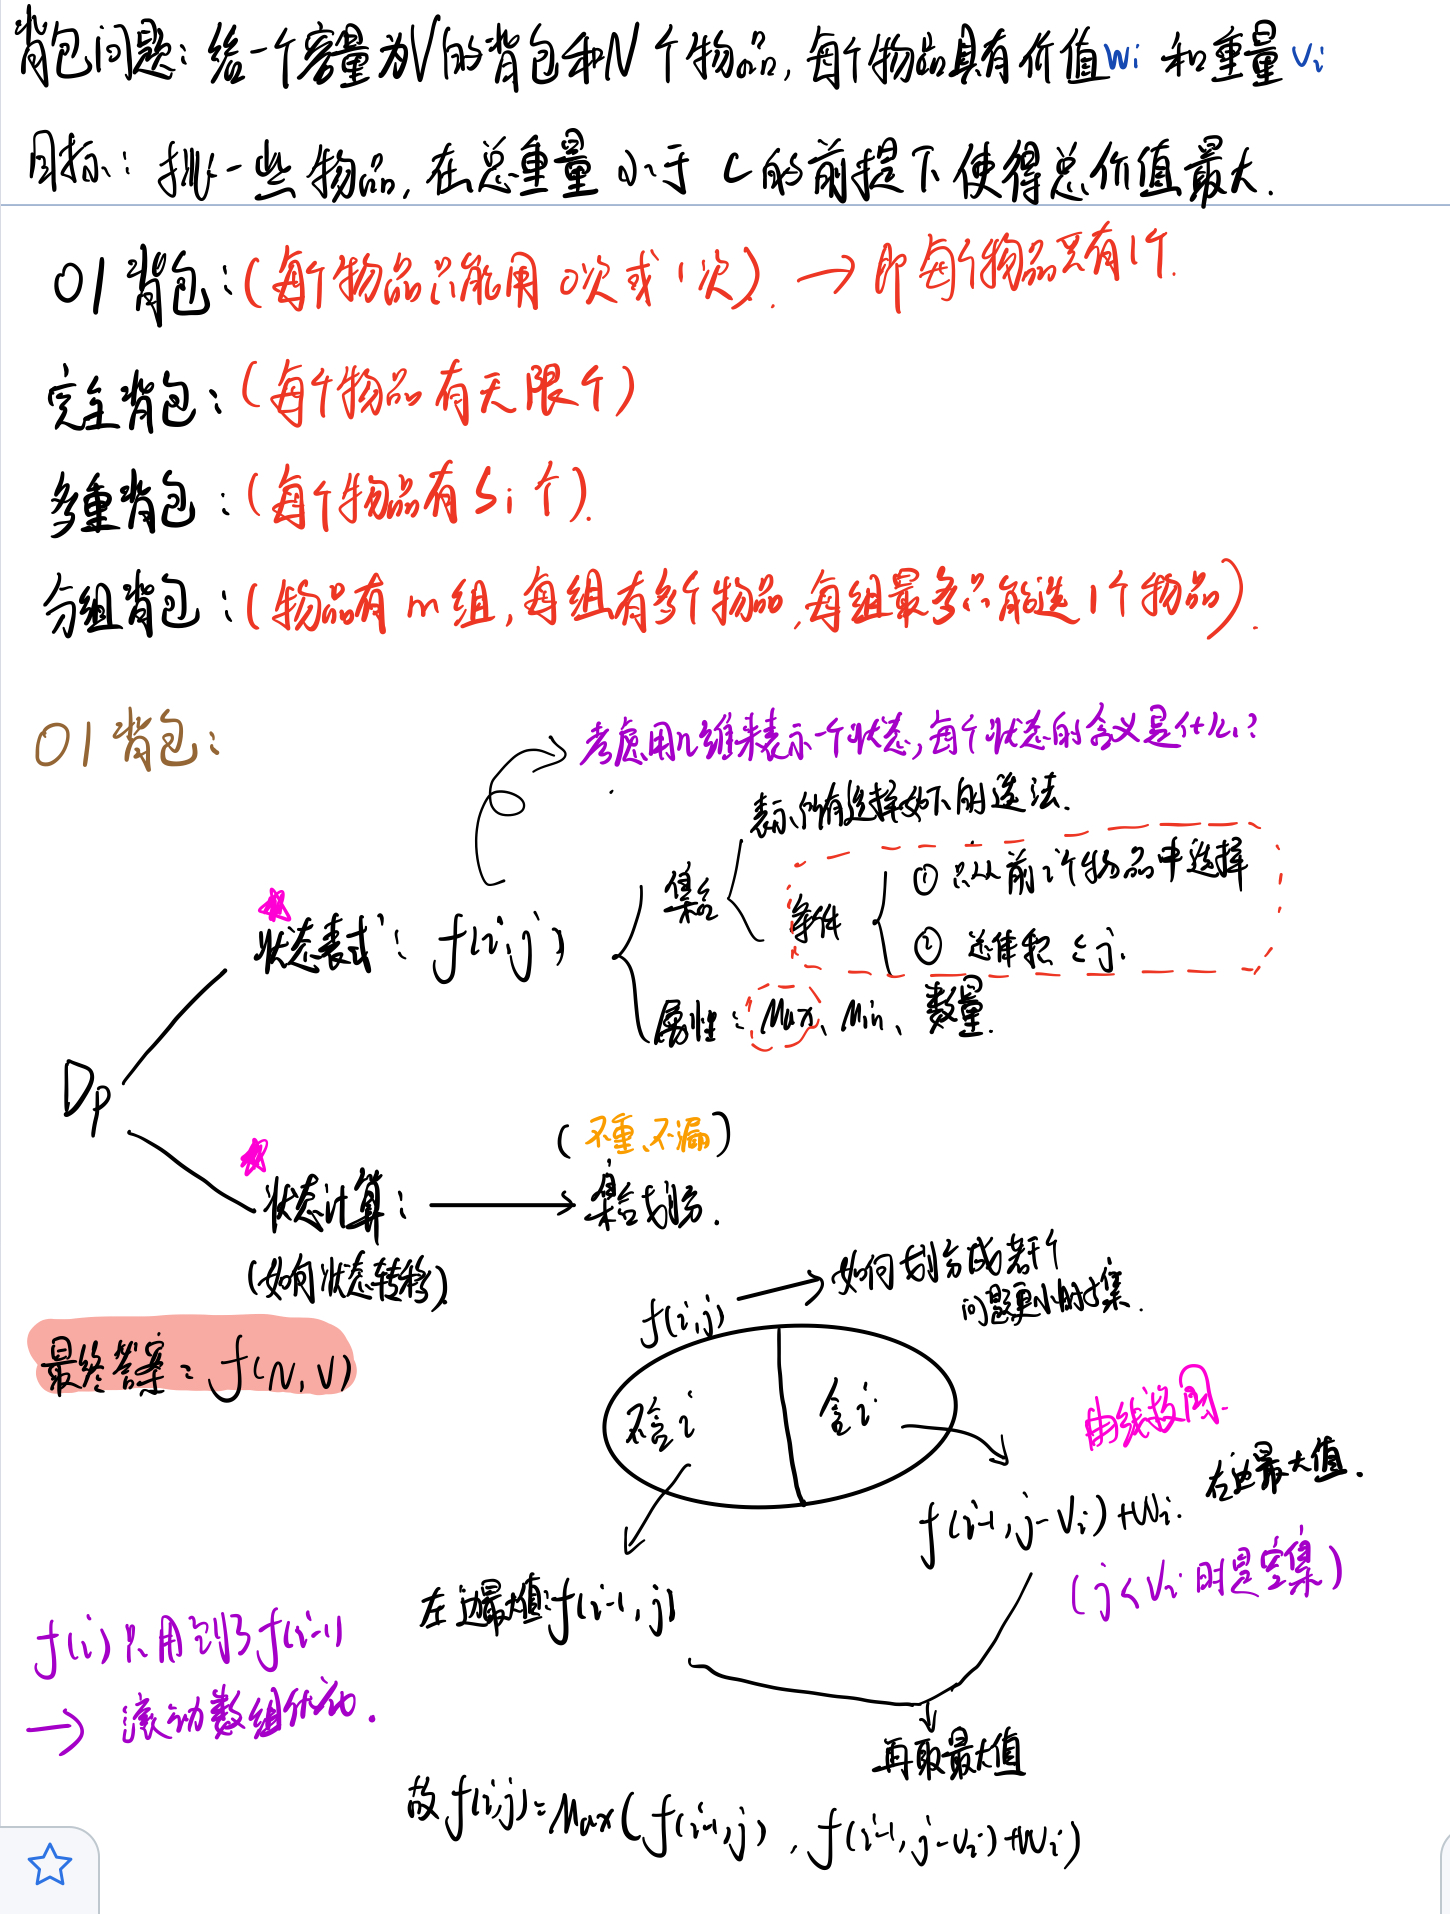 背包问题：给一个容量为V的背包和N个物品，每个物品具有价值wi 和重量vi
目标：挑一些物品，在总重量小于C的前提下使得总价值最大.
01背包：(每个物品只能用0次或1次). → 即每个物品只有1个.
完全背包：(每个物品有无限个)
多重背包：(每个物品有Si个).
分组背包：(物品有m组，每组有多个物品，每组最多只能选1个物品).
01背包：
考虑用几维来表示一个状态，每个状态的含义是什么？
表示所有选择如下的选法.
集合
条件
① 只从前i个物品中选择
② 总体积≤j.
状态表式：f(i,j)
属性：Max、Min、数量.
Dp
(不重、不漏)
状态计算：→ 集合划分.
(如何状态转移).
f(i,j) → 如何划分成若干个
问题更小的子集.
最终答案：f(N,V)
不含i
含i
曲线救国.
f(i-1,j-Vi)+Wi. 右边最大值.
(j<Vi时是空集)
左边最大值：f(i-1,j)
f(i)只用到了f(i-1)
→ 滚动数组优化.
再取最大值
故f(i,j)=Max(f(i-1,j), f(i-1,j-vi)+Wi)